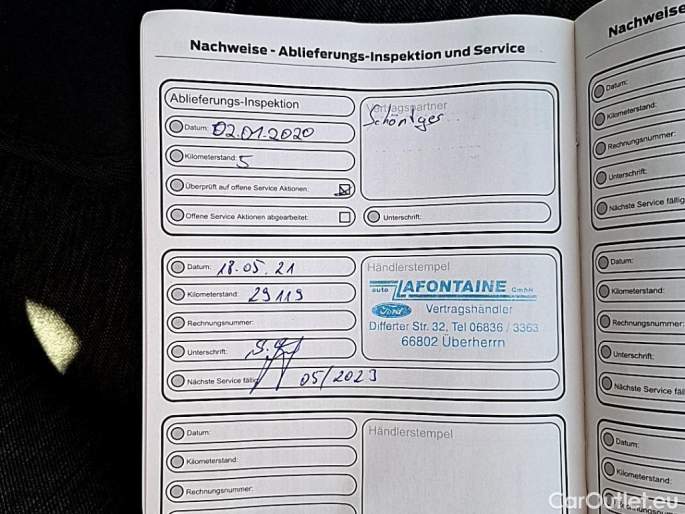 Nachweise - Ablieferungs-Inspektion und Service
Ablieferungs-Inspektion
Vertragspartner
Datum: 02.01.2020
Schöntger
Kilometerstand: 5
Überprüft auf offene Service Aktionen:
Offene Service Aktionen abgearbeitet:
Unterschrift:
Datum: 18.05.21
Händlerstempel
Kilometerstand: 29119
auto LAFONTAINE GmbH
Ford Vertragshändler
Rechnungsnummer:
Differter Str. 32, Tel 06836 / 3363
66802 Überherrn
Unterschrift:
Nächste Service fällig: 05/2023
Datum:
Händlerstempel
Kilometerstand:
Rechnungsnummer:
Nachweise
Datum:
Kilometerstand:
Rechnungsnummer:
Unterschrift:
Nächste Service fällig
Datum:
Kilometerstand:
Rechnungsnummer:
Unterschrift:
Nächste Service fäl
Datum:
Kilometerstand:
Rechnungsnumm
CarOutlet.eu